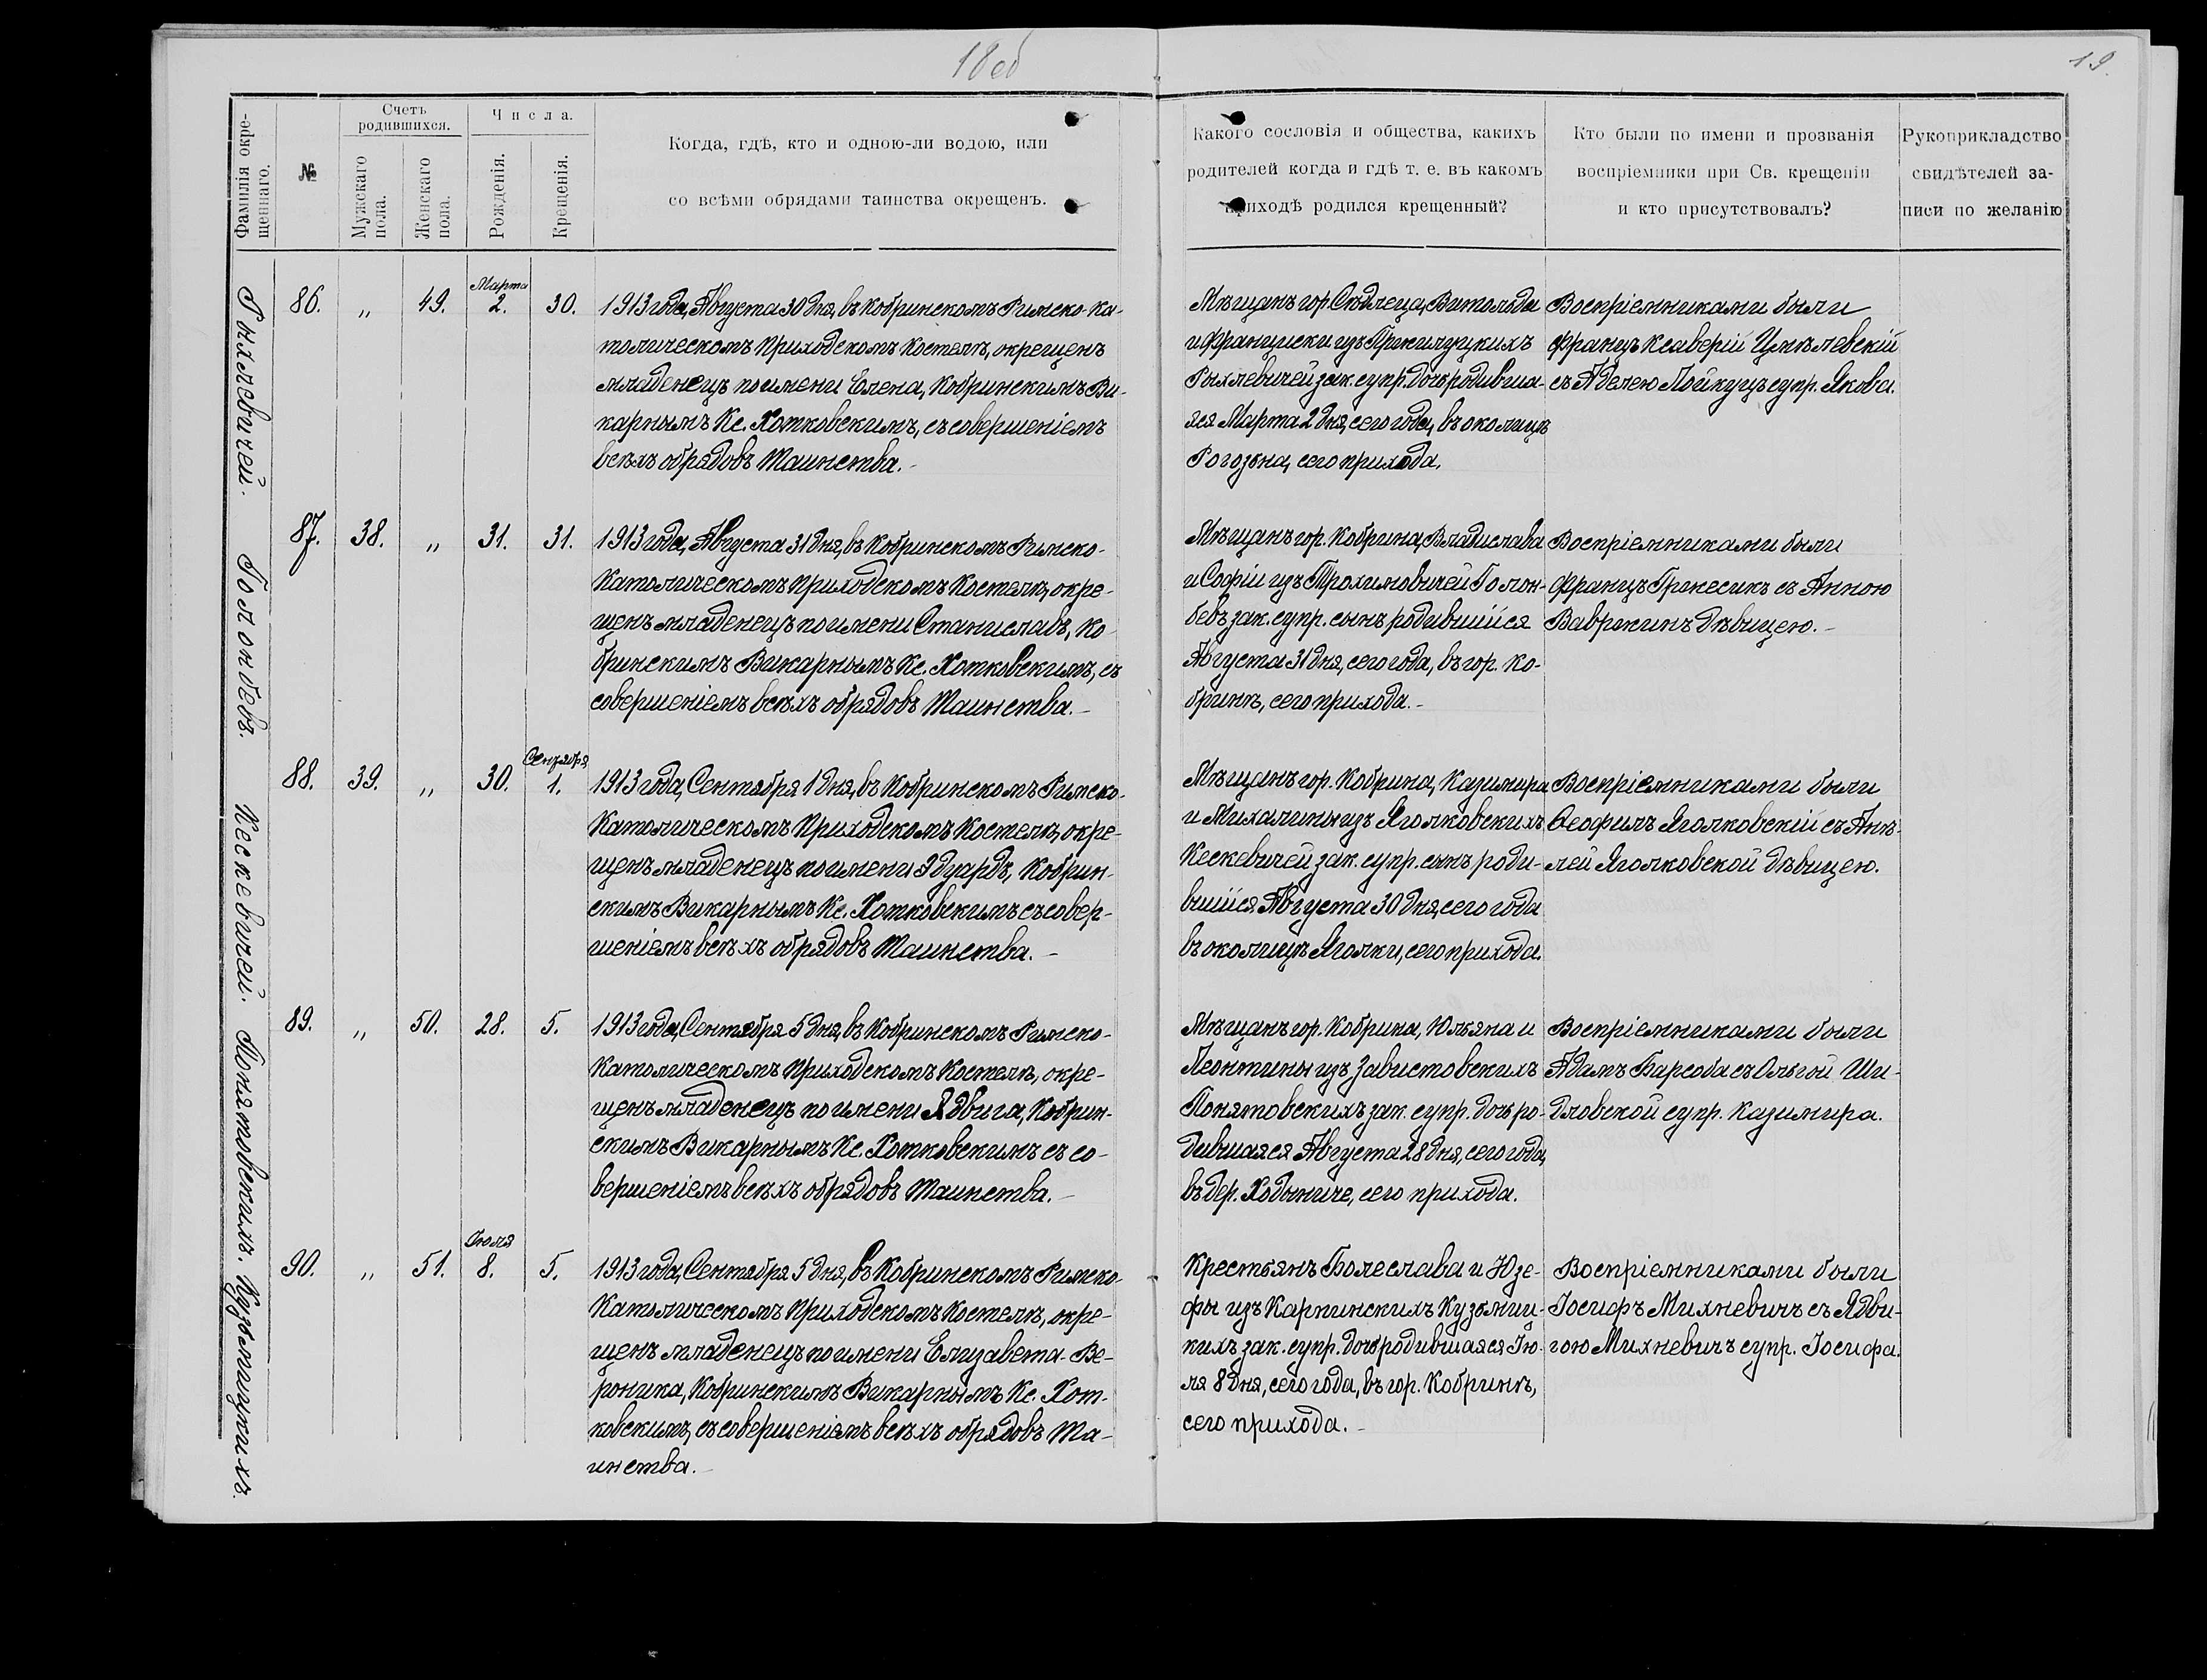 18 об
19.
Фамилія окре-
щеннаго.
№
Счетъ
родившихся.
Мужскаго
пола.
Женскаго
пола.
Числа.
Рожденія.
Крещенія.
Когда, гдѣ, кто и одною-ли водою, или
со всѣми обрядами таинства окрещенъ.
Какого сословія и общества, какихъ
родителей когда и гдѣ т. е. въ какомъ
приходѣ родился крещенный?
Кто были по имени и прозванія
воспріемники при Св. крещеніи
и кто присутствовалъ?
Рукоприкладство
свидѣтелей за-
писи по желанію
Рыхлевичей.
86. „ 49. Марта 2. 30.
1913 года, Августа 30 дня, въ Кобринскомъ Римско-Ка-
толическомъ Приходскомъ Костелѣ, окрещенъ
младенецъ по имени Елена, Кобринскимъ Ви-
карнымъ Кс. Хотковскимъ, съ совершеніемъ
всѣхъ обрядовъ Таинства.-
Мѣщанъ гор. Сѣдлеца, Витольда
и Франциски изъ Пржилуцкихъ
Рыхлевичей зак. супр. дочь родивша-
яся Марта 2 дня, сего года, въ околицѣ
Рогозьна, сего прихода.
Воспріемниками были
Францъ Ксаверій Цмѣлевскій
съ Аделею Лойкуцъ супр. Якова.
Голонбевъ.
87. 38. „ 31. 31.
1913 года, Августа 31 дня, въ Кобринскомъ Римско-
Католическомъ Приходскомъ Костелѣ, окре-
щенъ младенецъ по имени Станиславъ, Ко-
бринскимъ Викарнымъ Кс. Хотковскимъ, съ
совершеніемъ всѣхъ обрядовъ Таинства.-
Мѣщанъ гор. Кобрина, Владислава
и Софіи изъ Трохимовичей Голон-
бевъ зак. супр. сынъ родившійся
Августа 31 дня, сего года, въ гор. Ко-
бринѣ, сего прихода.-
Воспріемниками были
Францъ Гржесикъ съ Анною
Вавржинъ дѣвицею.-
Кескевичей.
88. 39. „ 30. Сентября 1.
1913 года, Сентября 1 дня, въ Кобринскомъ Римско-
Католическомъ Приходскомъ Костелѣ, окре-
щенъ младенецъ по имени Эдуардъ, Кобрин-
скимъ Викарнымъ Кс. Хотковскимъ съ совер-
шеніемъ всѣхъ обрядовъ Таинства.-
Мѣщанъ гор. Кобрина, Казимира
и Михалины изъ Яголковскихъ
Кескевичей зак. супр. сынъ роди-
вшійся Августа 30 дня, сего года
въ околицѣ Яголки, сего прихода.
Воспріемниками были
Ѳеофилъ Яголковскій съ Анѣ-
лей Яголковской дѣвицею.
Понятовскихъ.
89. „ 50. 28. 5.
1913 года, Сентября 5 дня, въ Кобринскомъ Римско-
Католическомъ Приходскомъ Костелѣ, окре-
щенъ младенецъ по имени Ядвига, Кобрин-
скимъ Викарнымъ Кс. Хотковскимъ съ со-
вершеніемъ всѣхъ обрядовъ Таинства.-
Мѣщанъ гор. Кобрина, Юльяна и
Леонтины изъ Завистовскихъ
Понятовскихъ зак. супр. дочь ро-
дившаяся Августа 28 дня, сего года,
въ дер. Ходыниче, сего прихода.
Воспріемниками были
Адамъ Барсоба съ Ольгой Ши-
дловской супр. Казимира.
Кузьмицкихъ.
90. „ 51. Іюля 8. 5.
1913 года, Сентября 5 дня, въ Кобринскомъ Римско-
Католическомъ Приходскомъ Костелѣ, окре-
щенъ младенецъ по имени Елизавета-Ве-
роника, Кобринскимъ Викарнымъ Кс. Хот-
ковскимъ, съ совершеніемъ всѣхъ обрядовъ Та-
инства.-
Крестьянъ Болеслава и Юзе-
фы изъ Карпинскихъ Кузьмиц-
кихъ зак. супр. дочь родившаяся Ію-
ля 8 дня, сего года, въ гор. Кобринѣ,
сего прихода.-
Воспріемниками были
Іосифъ Михневичъ съ Ядви-
гою Михневичъ супр. Іосифа.